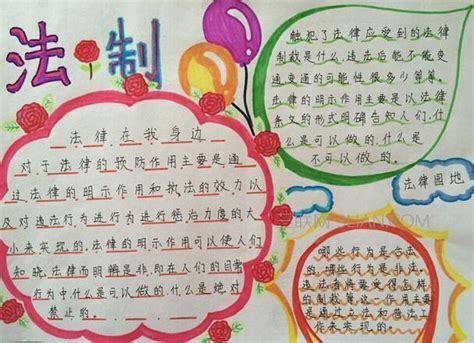 法制
法律在我身边
对于法律的预防作用主要是通
过法律的明示作用和执法的效力以
及对违法行为进行行为进行惩治力度的大
小来实现的,法律的明示作用可以使人们
知晓,法律而明辨是非,即在人们的日常
行为中什么是可以做的,什么是绝对
禁止的.
触犯了法律应受到的法律
制裁是什么,违法后能不能变
通,变通的可能性很多少等等.
法律的明示作用主要是以法律
条文的形式明确告知人们,什
么是可以做的,什么是
不可以做的.
法律园地
哪些行为是合法
的,哪些行为是非法,
违法者将要受得怎样
的制裁等,这一作用主要
是通过立法和普法工
作来实现的.